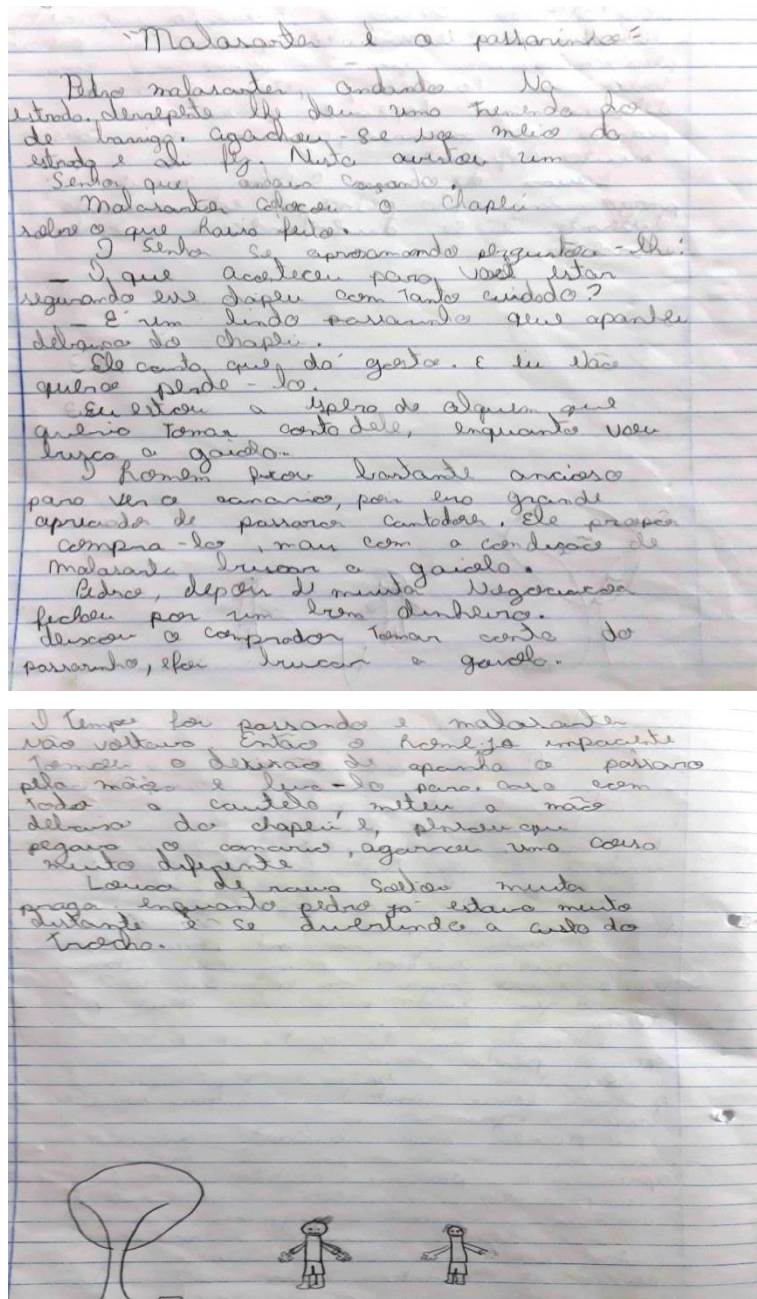 "Malasartes e o passarinho"
Pedro malasartes, andando Na
estrada. derrepente lhe deu uma tremenda do
de barriga. agachou-se no meio da
estrada e ali fez. Nisto avistou um
Senhor que andava caçando.
Malasartes colocou o chapéu
sobre o que havia feito.
O Senhor se aproximando perguntou-lhe:
— O que aconteceu para você estar
segurando esse chapéu com tanto cuidado?
— É um lindo passarinho que apanhei
debaixo do chapéu.
Ele canta que dá gosto. E eu não
quero perde-lo.
Eu estou a espera de alguem que
queria tomar conta dele, enquanto vou
busca a gaiola.
O homem ficou bastante ancioso
para ver o canario, pois era grande
apreciador de passaros cantadores. Ele propôs
compra-lo, mau com a condição de
malasarte buscar a gaiola.
Pedro, depois de muita Negociação
fechou por um bom dinheiro.
deixou o comprador tomar conta do
passarinho, e foi buscar a gaiola.
O tempo foi passando e malasartes
não voltava Então o home ja impaciente
tomou a decisão de apanha o passaro
pela mão e leva-lo para casa com
toda a cautela, meteu a mão
debaixo do chapeu e, pensou que
pegava o canario, agarrou uma coisa
muito diferente
Louco de raiva soltou muita
praga enquanto pedro já estava muito
distante e se divertindo a custo do
trocho.